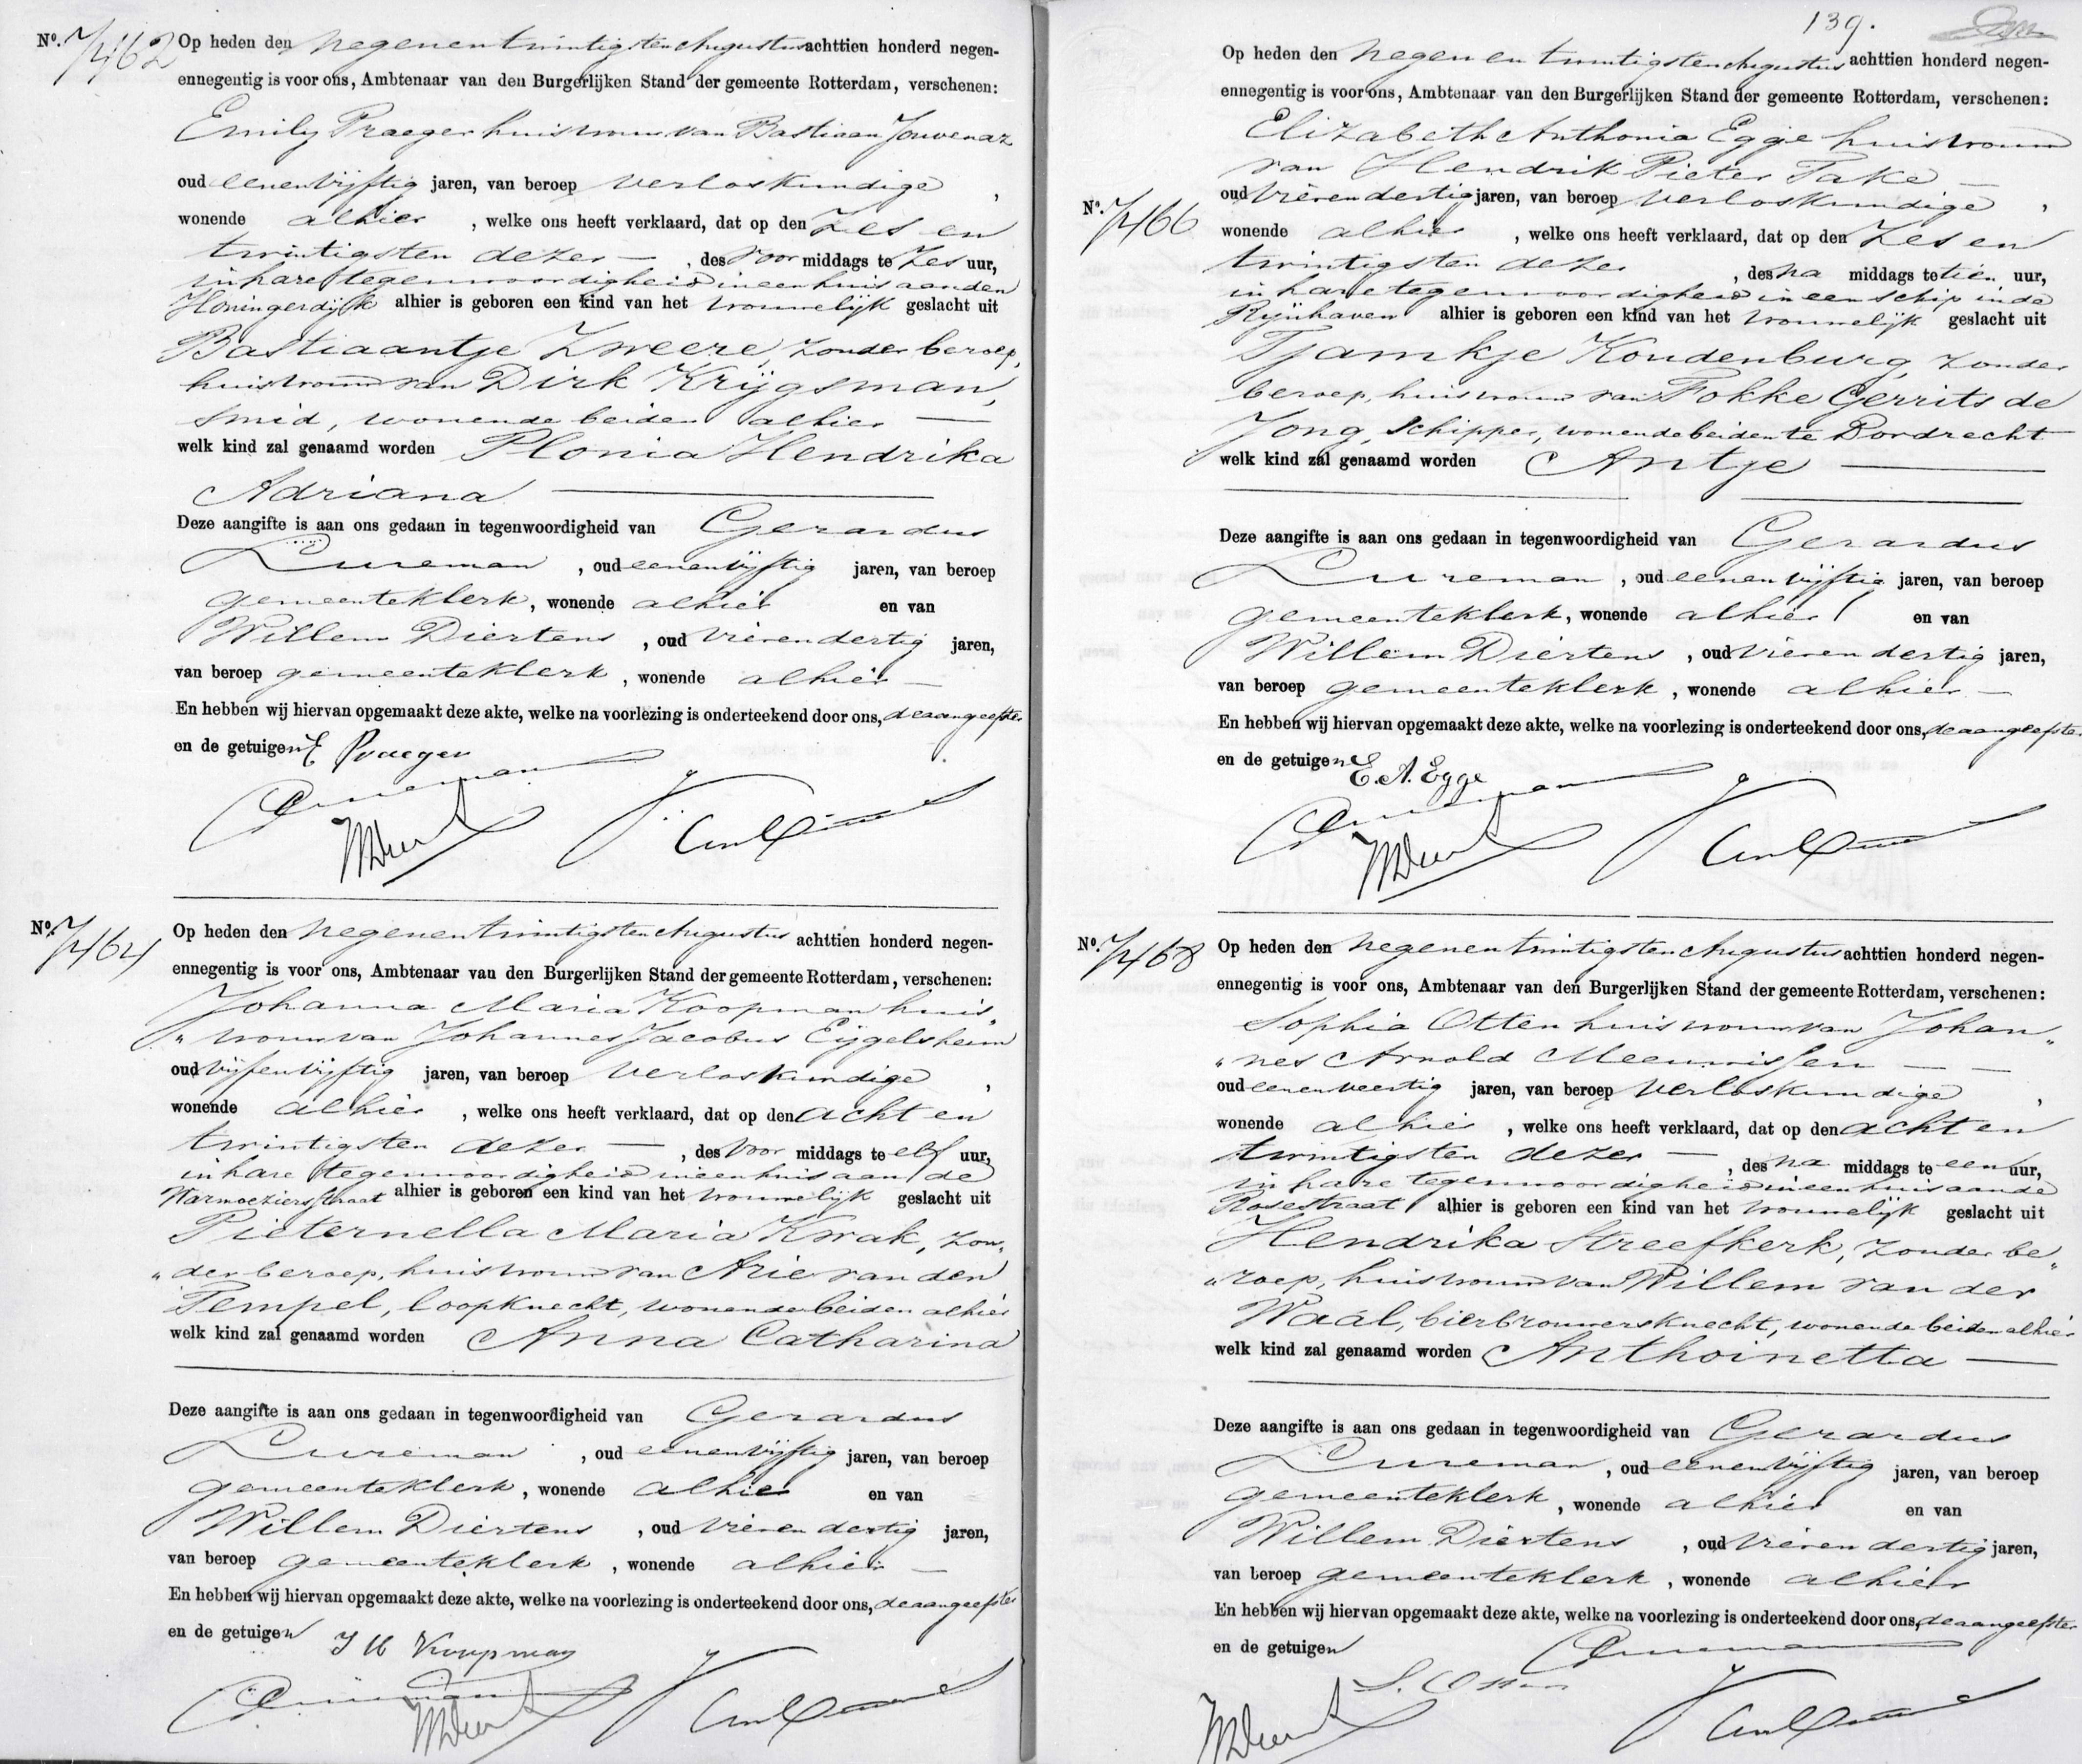 No. 7462 Op heden den negenentwintigsten Augustus achttien honderd negen-
ennegentig is voor ons, Ambtenaar van den Burgerlijken Stand der gemeente Rotterdam, verschenen:
Emily Praeger huisvrouw van Bastiaan Jouvenaz
oud eenenvijftig jaren, van beroep verloskundige,
wonende alhier, welke ons heeft verklaard, dat op den zes en
twintigsten dezer —, des voor middags te zes uur,
in hare tegenwoordigheid in een huis aan den
Honingerdijk alhier is geboren een kind van het vrouwelijk geslacht uit
Bastiaantje Zweere, zonder beroep,
huisvrouw van Dirk Krijgsman,
smid, wonende beiden alhier —
welk kind zal genaamd worden Plonia Hendrika
Adriana —
Deze aangifte is aan ons gedaan in tegenwoordigheid van Gerardus
Lureman, oud eenenvijftig jaren, van beroep
gemeenteklerk, wonende alhier en van
Willem Diertens, oud vierendertig jaren,
van beroep gemeenteklerk, wonende alhier —
En hebben wij hiervan opgemaakt deze akte, welke na voorlezing is onderteekend door ons, de aangeefster
en de getuigen E Praeger
No. 7464 Op heden den negenentwintigsten Augustus achttien honderd negen-
ennegentig is voor ons, Ambtenaar van den Burgerlijken Stand der gemeente Rotterdam, verschenen:
Johanna Maria Koopman huis„
„vrouw van Johannes Jacobus Eijgelsheim
oud vijfenvijftig jaren, van beroep verloskundige,
wonende alhier, welke ons heeft verklaard, dat op den acht en
twintigsten dezer —, des voor middags te elf uur,
in hare tegenwoordigheid in een huis aan de
Warmoeziersstraat alhier is geboren een kind van het vrouwelijk geslacht uit
Pieternella Maria Kwak, zon„
„der beroep, huisvrouw van Arie van den
Tempel, loopknecht, wonende beiden alhier
welk kind zal genaamd worden Anna Catharina
Deze aangifte is aan ons gedaan in tegenwoordigheid van Gerardus
Lureman, oud eenenvijftig jaren, van beroep
gemeenteklerk, wonende alhier en van
Willem Diertens, oud vierendertig jaren,
van beroep gemeenteklerk, wonende alhier —
En hebben wij hiervan opgemaakt deze akte, welke na voorlezing is onderteekend door ons, de aangeefster
en de getuigen J M Koopman
139.
Op heden den negenentwintigsten Augustus achttien honderd negen-
ennegentig is voor ons, Ambtenaar van den Burgerlijken Stand der gemeente Rotterdam, verschenen:
Elizabeth Anthonia Egge huisvrouw
van Hendrik Pieter Take —
oud vierendertig jaren, van beroep verloskundige,
No. 7466 wonende alhier, welke ons heeft verklaard, dat op den zes en
twintigsten dezer, des na middags te tien uur,
in hare tegenwoordigheid in een schip in de
Rijnhaven alhier is geboren een kind van het vrouwelijk geslacht uit
Tjamkje Koudenburg, zonder
beroep, huisvrouw van Fokke Gerrits de
Jong, schipper, wonende beiden te Dordrecht
welk kind zal genaamd worden Antje —
Deze aangifte is aan ons gedaan in tegenwoordigheid van Gerardus
Lureman, oud eenenvijftig jaren, van beroep
gemeenteklerk, wonende alhier en van
Willem Diertens, oud vierendertig jaren,
van beroep gemeenteklerk, wonende alhier —
En hebben wij hiervan opgemaakt deze akte, welke na voorlezing is onderteekend door ons, de aangeefster
en de getuigen E. A. Egge
No. 7468 Op heden den negenentwintigsten Augustus achttien honderd negen-
ennegentig is voor ons, Ambtenaar van den Burgerlijken Stand der gemeente Rotterdam, verschenen:
Sophia Otten huisvrouw van Johan„
„nes Arnold Meeuwissen — —
oud eenenveertig jaren, van beroep verloskundige,
wonende alhier, welke ons heeft verklaard, dat op den acht en
twintigsten dezer —, des na middags te een uur,
in hare tegenwoordigheid in een huis aan de
Rosestraat alhier is geboren een kind van het vrouwelijk geslacht uit
Hendrika Streefkerk, zonder be„
„roep, huisvrouw van Willem van der
Waal, bierbrouwersknecht, wonende beiden alhier
welk kind zal genaamd worden Anthoinetta —
Deze aangifte is aan ons gedaan in tegenwoordigheid van Gerardus
Lureman, oud eenenvijftig jaren, van beroep
gemeenteklerk, wonende alhier en van
Willem Diertens, oud vierendertig jaren,
van beroep gemeenteklerk, wonende alhier
En hebben wij hiervan opgemaakt deze akte, welke na voorlezing is onderteekend door ons, de aangeefster
en de getuigen
S. Otten